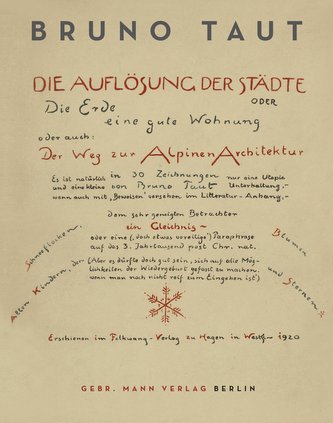 BRUNO TAUT
DIE AUFLÖSUNG DER STÄDTE
ODER
Die Erde
eine gute Wohnung
oder auch:
Der Weg zur Alpinen Architektur
Es ist natürlich in 30 Zeichnungen nur eine Utopie
und eine kleine von Bruno Taut Unterhaltung,-
wenn auch mit „Beweisen" versehen im Litteratur-Anhang,-
dem sehr geneigten Betrachter
ein Gleichnis ~
oder eine (, doch etwas voreilige) Paraphrase
auf das 3. Jahrtausend post Chr. nat.
(Aber es dürfte doch gut sein, sich auf alle Mög-
lichkeiten der Wiedergeburt gefasst zu machen,
wenn man noch nicht reif zum Eingehen ist)
Allen Kindern, den
Schneeflocken,
Blumen
und Sternen
Erschienen im Folkwang-Verlag zu Hagen in Westf. – 1920
GEBR. MANN VERLAG BERLIN